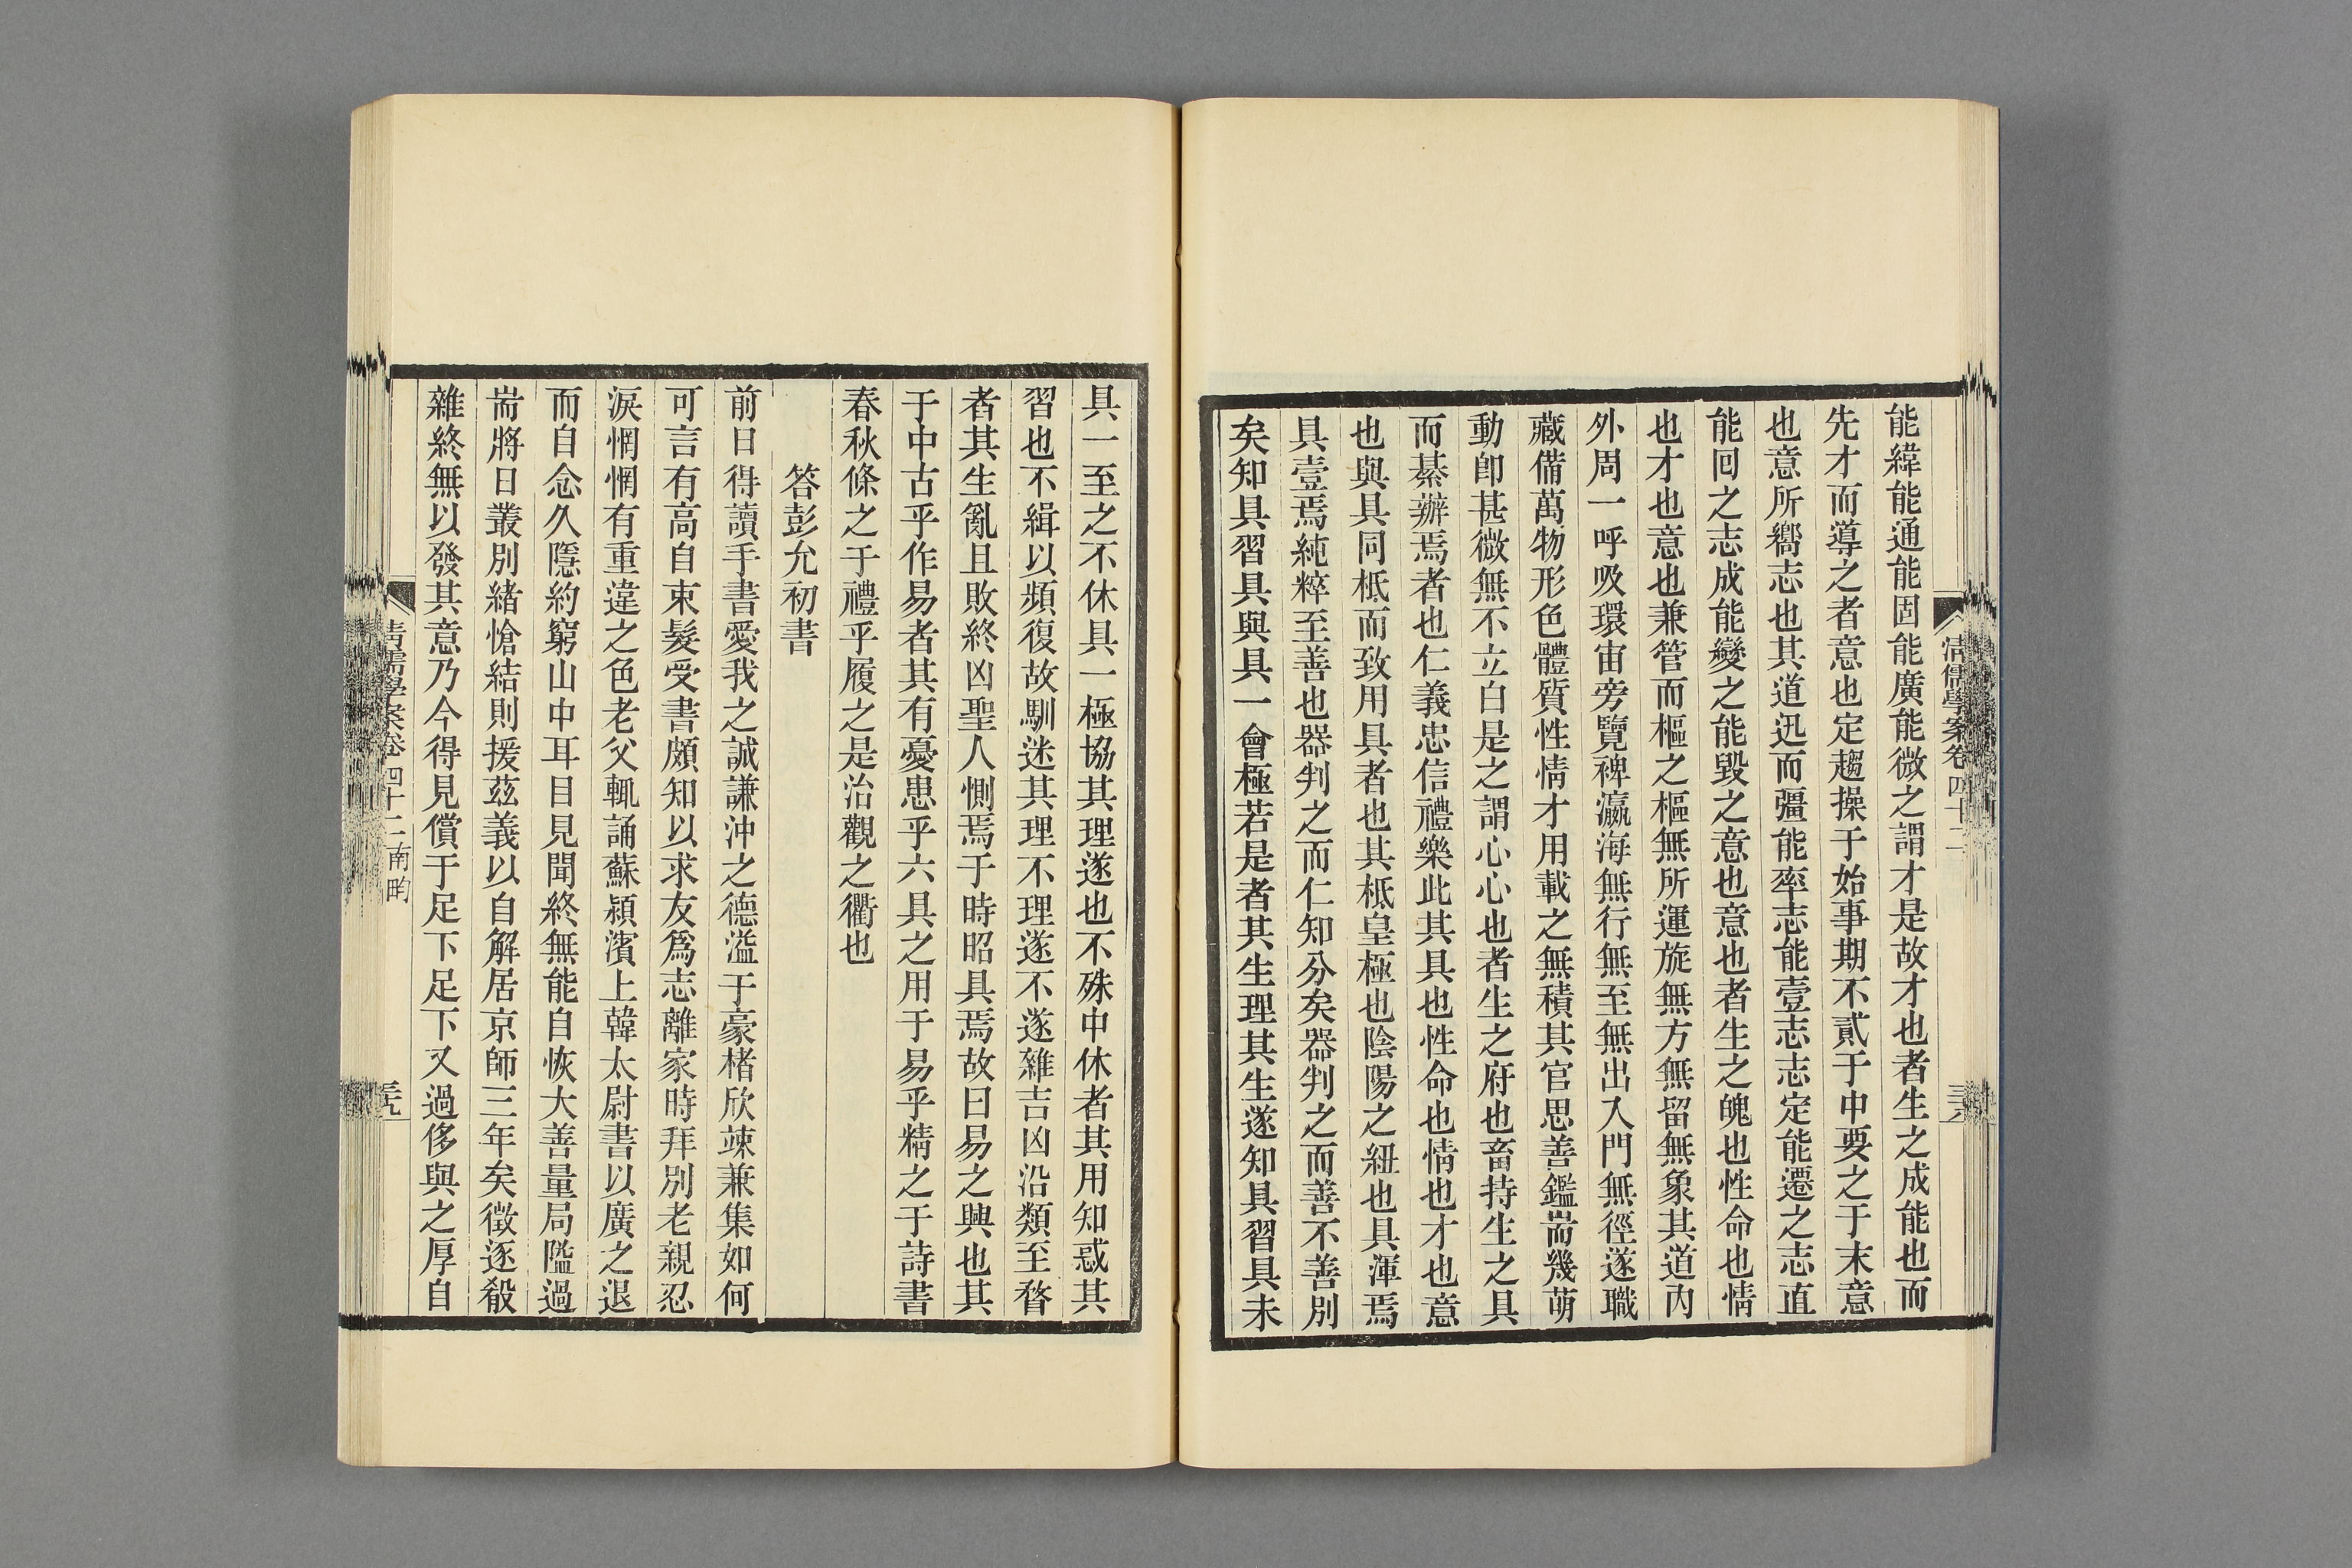 能緯能通能固能廣能微之謂才是故才也者生之成能也而
先才而導之者意也定趨操于始事期不貳于中要之于末意
也意所嚮志也其道迅而彊能率志能壹志志定能遷之志直
能回之志成能變之能毀之意也意也者生之魄也性命也情
也才也意也兼管而樞之樞無所運旋無方無留無象其道內
外周一呼吸環宙旁覽裨瀛海無行無至無出入門無徑遂職
藏備萬物形色體質性情才用載之無積其官思善鑑耑幾萌
動卽甚微無不立白是之謂心心也者生之府也畜持生之具
而綦辦焉者也仁義忠信禮樂此其具也性命也情也才也意
也與具同柢而致用具者也其柢皇極也陰陽之紐也具渾焉
具壹焉純粹至善也器判之而仁知分矣器判之而善不善別
矣知具習具與具一會極若是者其生理其生遂知具習具未
清儒學案卷四十二
具一至之不休具一極協其理遂也不殊中休者其用知惑其
習也不緝以頻復故馴迷其理不理遂不遂雜吉凶沿類至瞀
者其生亂且敗終凶聖人惻焉于時昭具焉故曰易之興也其
于中古乎作易者其有憂患乎六具之用于易乎精之于詩書
春秋條之于禮乎履之是治觀之衢也
答彭允初書
前日得讀手書愛我之誠謙沖之德溢于豪楮欣竦兼集如何
可言有高自束髮受書頗知以求友爲志離家時拜別老親忍
淚惘惘有重違之色老父輒誦蘇潁濱上韓太尉書以廣之退
而自念久隱約窮山中耳目見聞終無能自恢大善量局隘過
耑將日叢別緒愴結則援茲義以自解居京師三年矣徵逐殽
雜終無以發其意乃今得見償于足下足下又過侈與之厚自
清儒學案卷四十二 南畇